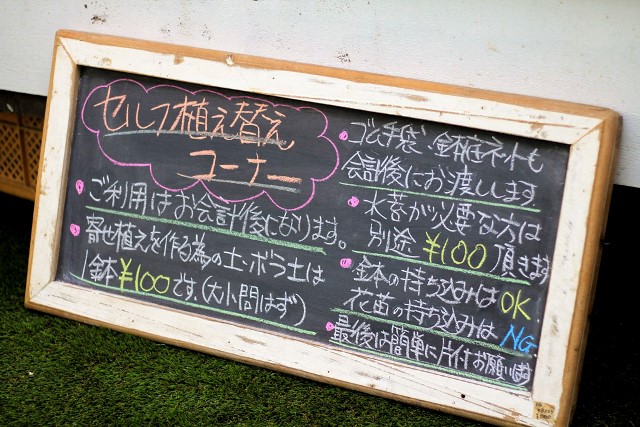 セルフ植え替え
コーナー
ご利用はお会計後になります。
寄せ植えを作る為の土・ボラ土は
1鉢¥100です。(大小問はず)
ゴム手袋・鉢底ネットも
会計後にお渡しします
水苔が必要な方は
別途 ¥100 頂きます
鉢の持ち込みは OK
花苗の持ち込みは NG
最後は簡単に片付お願いします